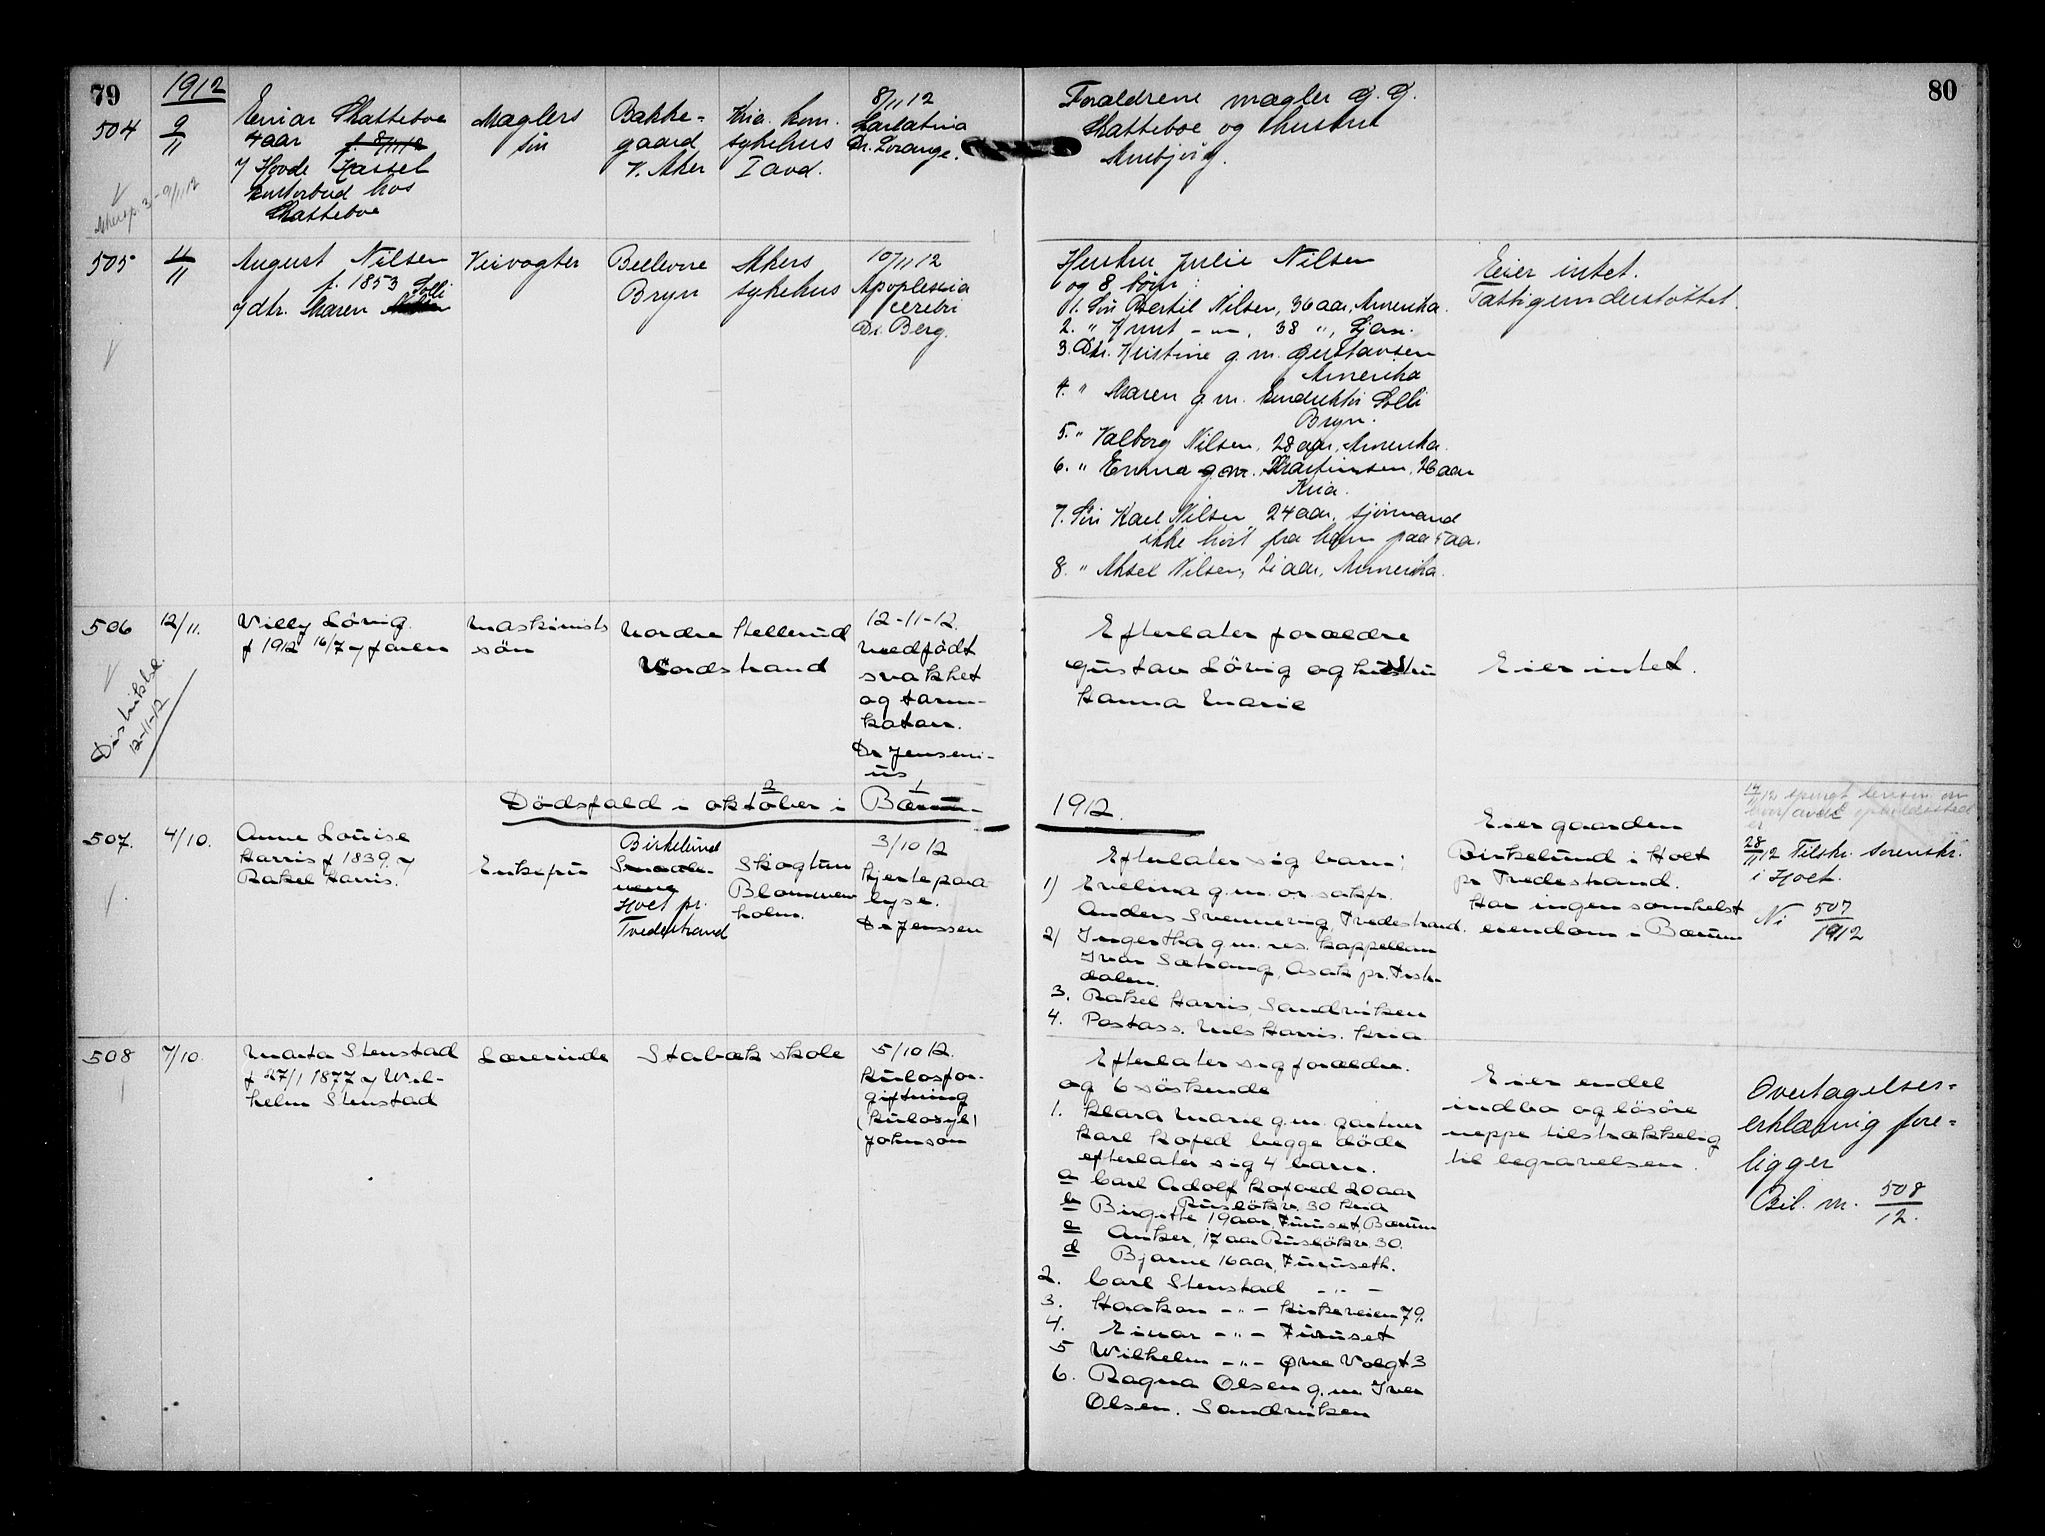 79
1912
504
9/11
Einar Skatteboe
4 aar f. 8/11 12
v/ Hovde Hassel
kontorbud hos
Skatteboe
Mæglers
søn
Bakke-
gaard
V. Aker
Kria. kom.
sykehus
I avd.
8/11 12
Scarlatina
Dr. Lorange.
Akersp. 3 - 9/11 12
Forældrene mægler G. G.
Skatteboe og hustru
80
505
11/11
August Nilsen
f. 1853
v/ dtr. Maren Solli
Veivogter
Bellevue
Bryn
Akers
sykehus
10/11 12
Apoplexia
cerebri
Dr. Berg.
Hustru Julie Nilsen
og 8 børn:
1. Søn Bertil Nilsen, 36 aar, Amerika.
2. " Knut - " -, 38 ", Ljan.
3. Dtr. Kristine g. m. Gustavsen
Amerika
4. " Maren g. m. konduktør Solli
Bryn.
5. " Valborg Nilsen, 28 aar, Amerika.
6. " Emma g. m. Martinsen, 26 aar
Kria.
7. Søn Karl Nilsen 24 aar, sjømand
ikke hørt fra ham paa 5 aar.
8. " Aksel Nilsen, 21 aar, Amerika.
Eier intet.
Fattigunderstøttet.
506
12/11.
Villy Lövig.
f 1912 16/7 v/ faren
Maskinists
sön
Nordre Stellerud
Nordstrand
12-11-12.
Medfödt
svakhet
og tarm-
katarr.
Dr Jenseni-
us
Distriktsl.
12-11-12
Efterlater forældre
Gustav Lövig og hustru
Hanna Marie
Eier intet.
Dödsfald i oktober i Bærum
1912.
507.
4/10.
Anne Louise
Harris f 1839. v/
Rakel Harris.
Enkefru
Birkelund
Holt pr.
Tvedestrand
Skogtun
Blommen-
holm.
3/10 12
Hjertepara
lyse.
Dr Jenssen
Efterlater sig barn:
1) Evelina g. m. or. sakfr.
Anders Svennevig, Tvedestrand.
2) Ingertha g. m. res. kappellan
Ivar Sætrang, Asak pr. Tiste-
dalen.
3. Rakel Harris, Sandviken
4. Postass. Nils Harris. Kria
Eier gaarden
Birkelund i Holt
pr Tvedestrand.
Har ingensomhelst
eiendom i Bærum
28/11 12 Tilskr. sorenskr.
i Holt.
No 507/1912
508
7/10.
Marta Stenstad
f 27/1 1877 v/ Wil-
helm Stenstad
Lærerinde
Stabæk skole
5/10 12.
Kulosfor-
giftning
(kulosyl)
Johnson
Efterlater sig forældre.
og 6 söskende
1. Klara Marie g. m. gartner
Karl Kofoed begge döde
efterlater sig 4 barn.
a Carl Adolf Kofoed 20 aar
Ruslökv. 30 Kria
b Birgitte 19 aar, Furuset, Bærum
c Anker, 17 aar Ruslökv. 30.
d Bjarne 16 aar, Furuseth.
2. Carl Stenstad - " -
3. Haakon - " - Kirkeveien 79.
4. Einar - " - Furuset
5 Wilhelm - " - Øvre Voldgt 3
6. Ragna Olsen g. m Iver
Olsen. Sandviken
Eier endel
indbo og lösöre
neppe tilstrækkelig
til begravelsen.
Overtagelses-
erklæring fore-
ligger
Bil. m. 508/12.